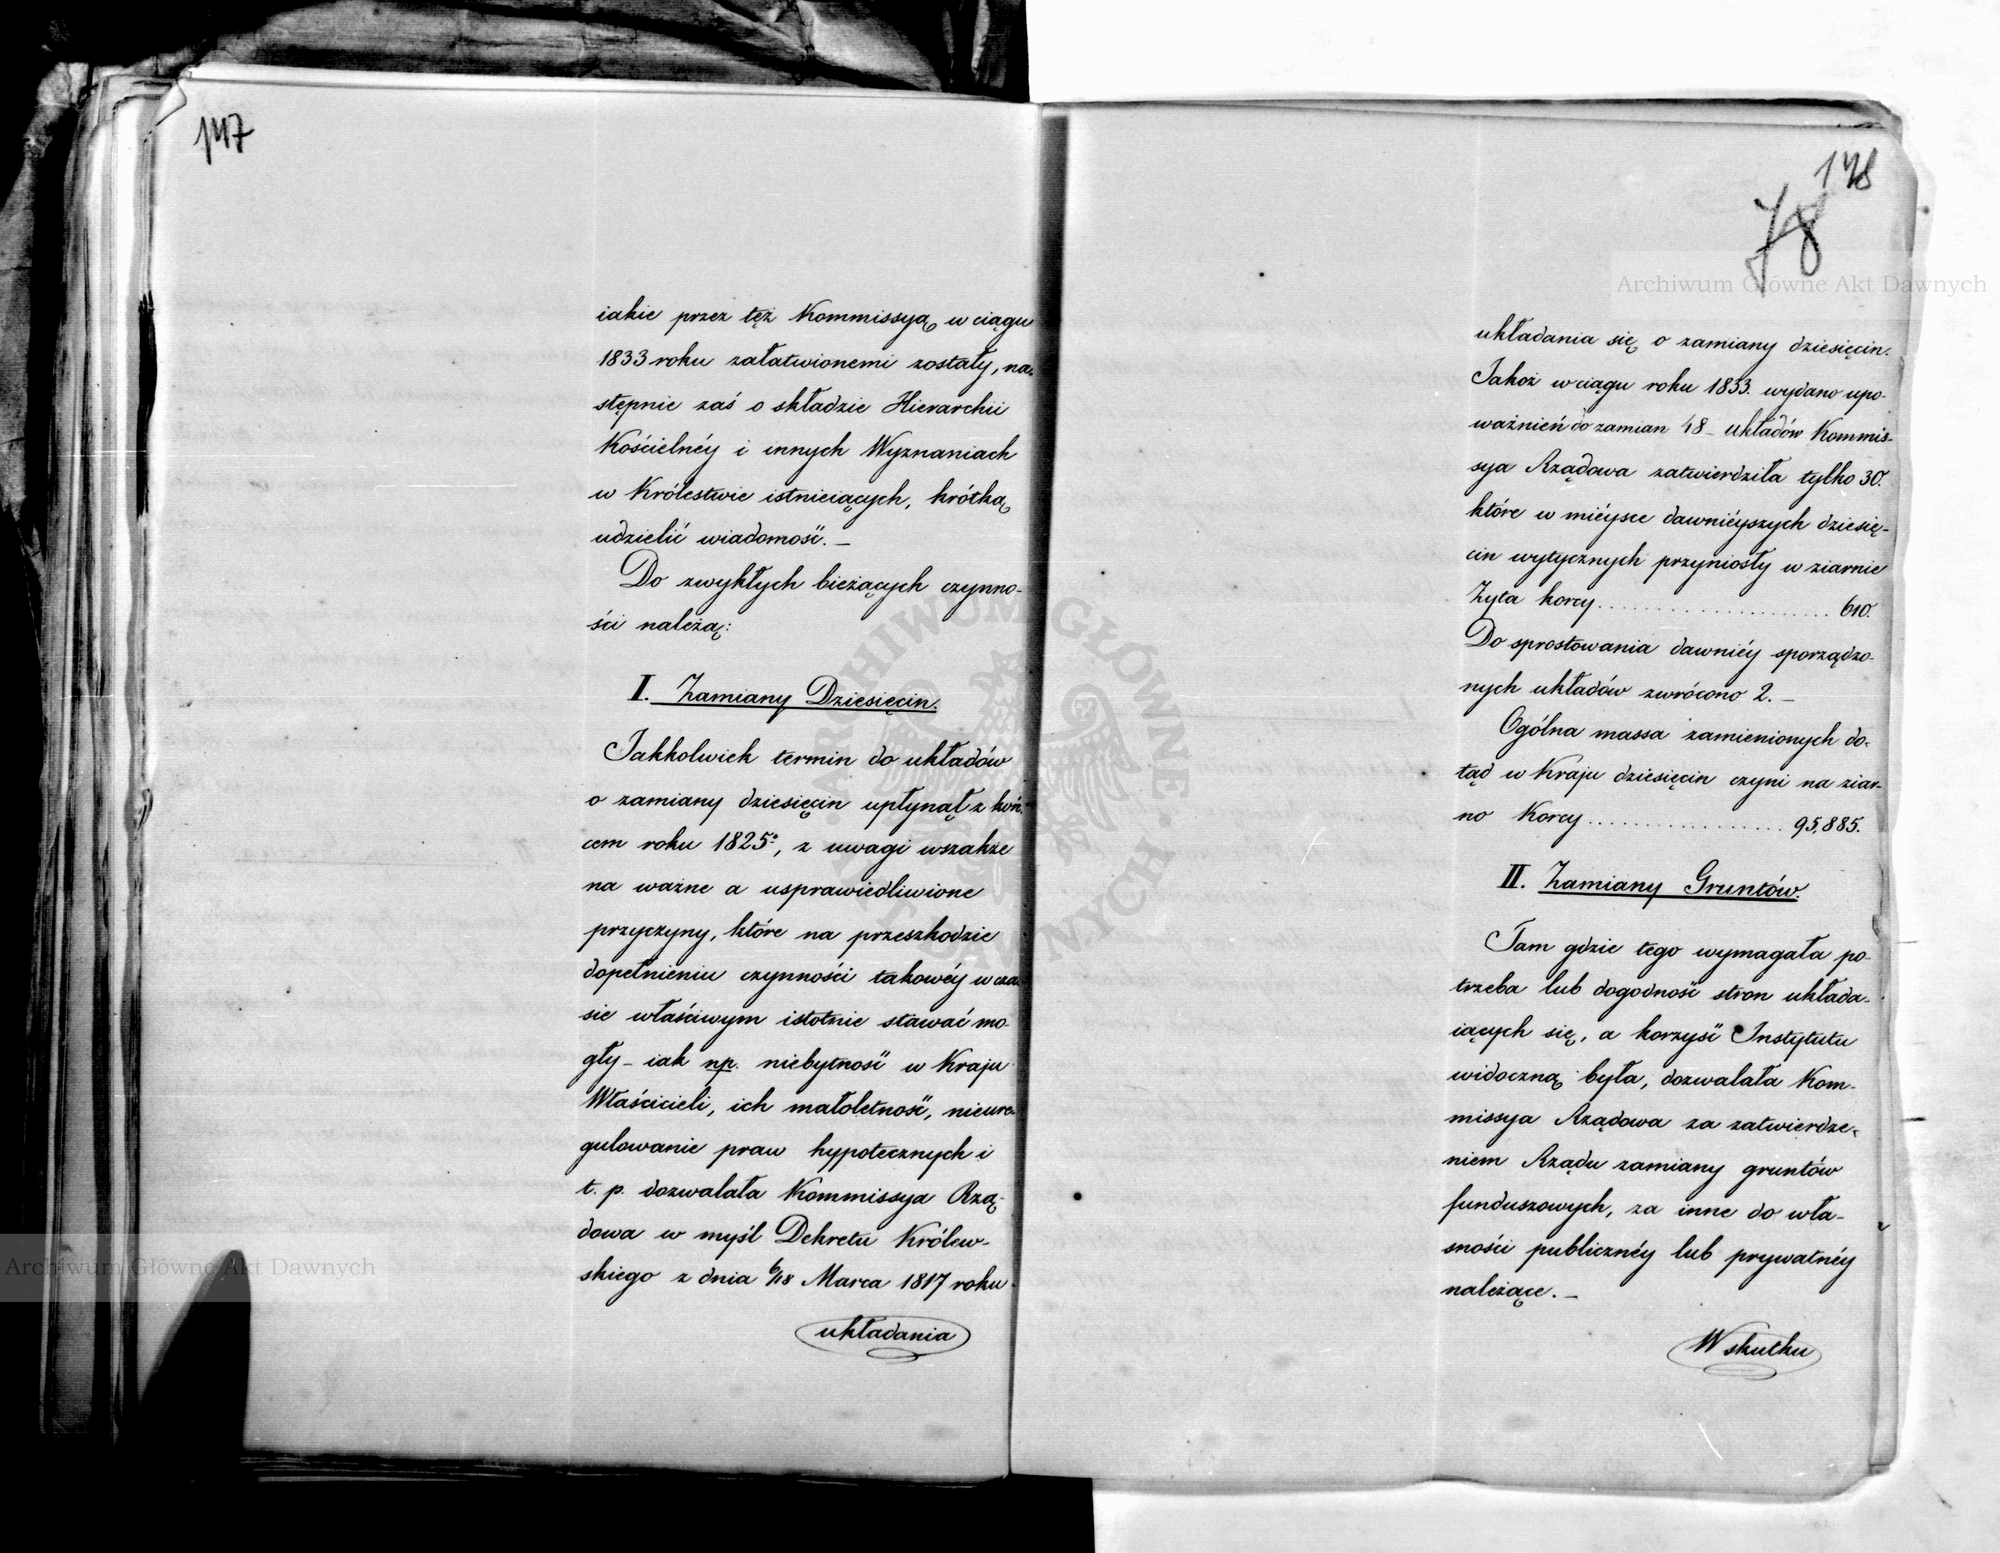 147
iakie przez też Kommissyą w ciągu
1833 roku załatwionemi zostały, na-
stępnie zaś o składzie Hierarchii
Kościelnéy i innych Wyznaniach
w Królestwie istnieiących, krótką
udzielić wiadomość. —
Do zwykłych bieżących czynno-
ści należą:
I. Zamiany Dziesięcin.
Jakkolwiek termin do układów
o zamiany dziesięcin upłynął z koń-
cem roku 1825º, z uwagi wszakże
na ważne a usprawiedliwione
przyczyny, które na przeszkodzie
dopełnieniu czynności takowéy w cza-
sie właściwym istotnie stawać mo-
gły – iak np. niebytność w Kraju
Właścicieli, ich małoletność, nieure-
gulowanie praw hypotecznych i
t. p. dozwalała Kommissya Rzą-
dowa w myśl Dekretu Królew-
skiego z dnia 6/18 Marca 1817 roku
układania
148
78
układania się o zamiany dziesięcin.
Jakoż w ciągu roku 1833. wydano upo-
ważnień do zamian 48 – układów Kommis-
sya Rządowa zatwierdziła tylko 30.
które w miéysce dawniéyszych dziesię-
cin wytycznych przyniosły w ziarnie
Żyta korcy . . . . . . . . . . . . . . . . . . . . 610.
Do sprostowania dawniéy sporządzo-
nych układów zwrócono 2. —
Ogólna massa zamienionych do-
tąd w Kraju dziesięcin czyni na ziar-
no Korcy . . . . . . . . . . . . . . . . . 95,885.
II. Zamiany Gruntów.
Tam gdzie tego wymagała po-
trzeba lub dogodność stron układa-
iących się, a korzyść Instytutu
widoczną była, dozwalała Kom-
missya Rządowa za zatwierdze-
niem Rządu zamiany gruntów
funduszowych, za inne do wła-
sności publicznéy lub prywatnéy
należące. —
W skutku
Archiwum Główne Akt Dawnych
Archiwum Główne Akt Dawnych
ARCHIWUM GŁÓWNE AKT DAWNYCH